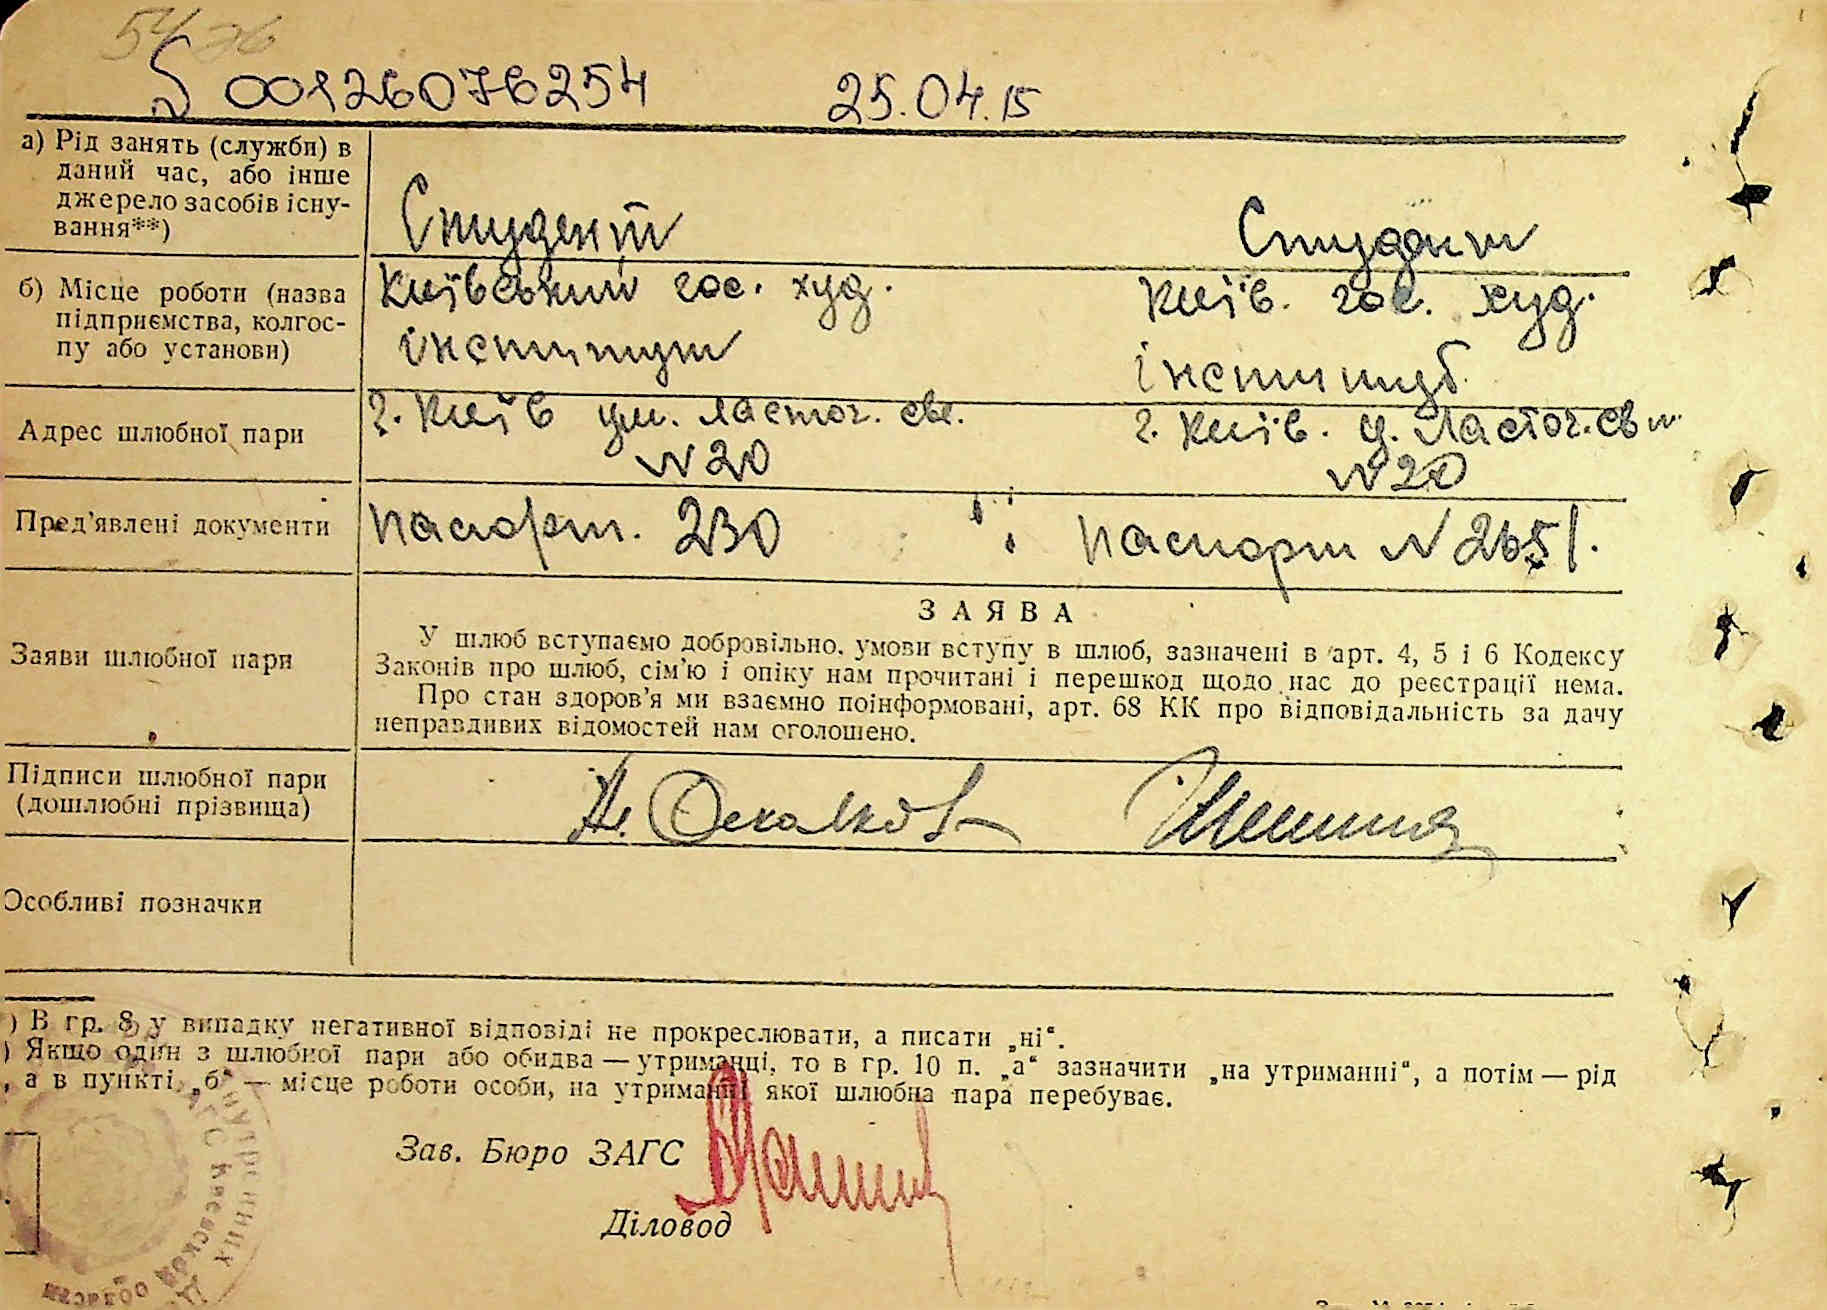 54
00126076254 25.04.15
а) Рід занять (служби) в
даний час, або інше
джерело засобів існу-
вання**)
Студент Студент
б) Місце роботи (назва
підприємства, колгос-
пу або установи)
Київський гос. худ. Київ. гос. худ.
інститут інститут
Адрес шлюбної пари
г. Київ ул. Ласточ. г. Київ. у. Ласточ.
N 20 N 20
Пред'явлені документи
паспорт. 230 паспорт N 2651.
Заяви шлюбної пари
ЗАЯВА
У шлюб вступаємо добровільно, умови вступу в шлюб, зазначені в арт. 4, 5 і 6 Кодексу
Законів про шлюб, сім'ю і опіку нам прочитані і перешкод щодо нас до реєстрації нема.
Про стан здоров'я ми взаємно поінформовані, арт. 68 КК про відповідальність за дачу
неправдивих відомостей нам оголошено.
Підписи шлюбної пари
(дошлюбні прізвища)
Особливі позначки
) В гр. 8 у випадку негативної відповіді не прокреслювати, а писати „ні“.
) Якщо один з шлюбної пари або обидва — утриманці, то в гр. 10 п. „а“ зазначити „на утриманні“, а потім — рід
, а в пункті „б“ — місце роботи особи, на утриманні якої шлюбна пара перебуває.
Зав. Бюро ЗАГС
Діловод